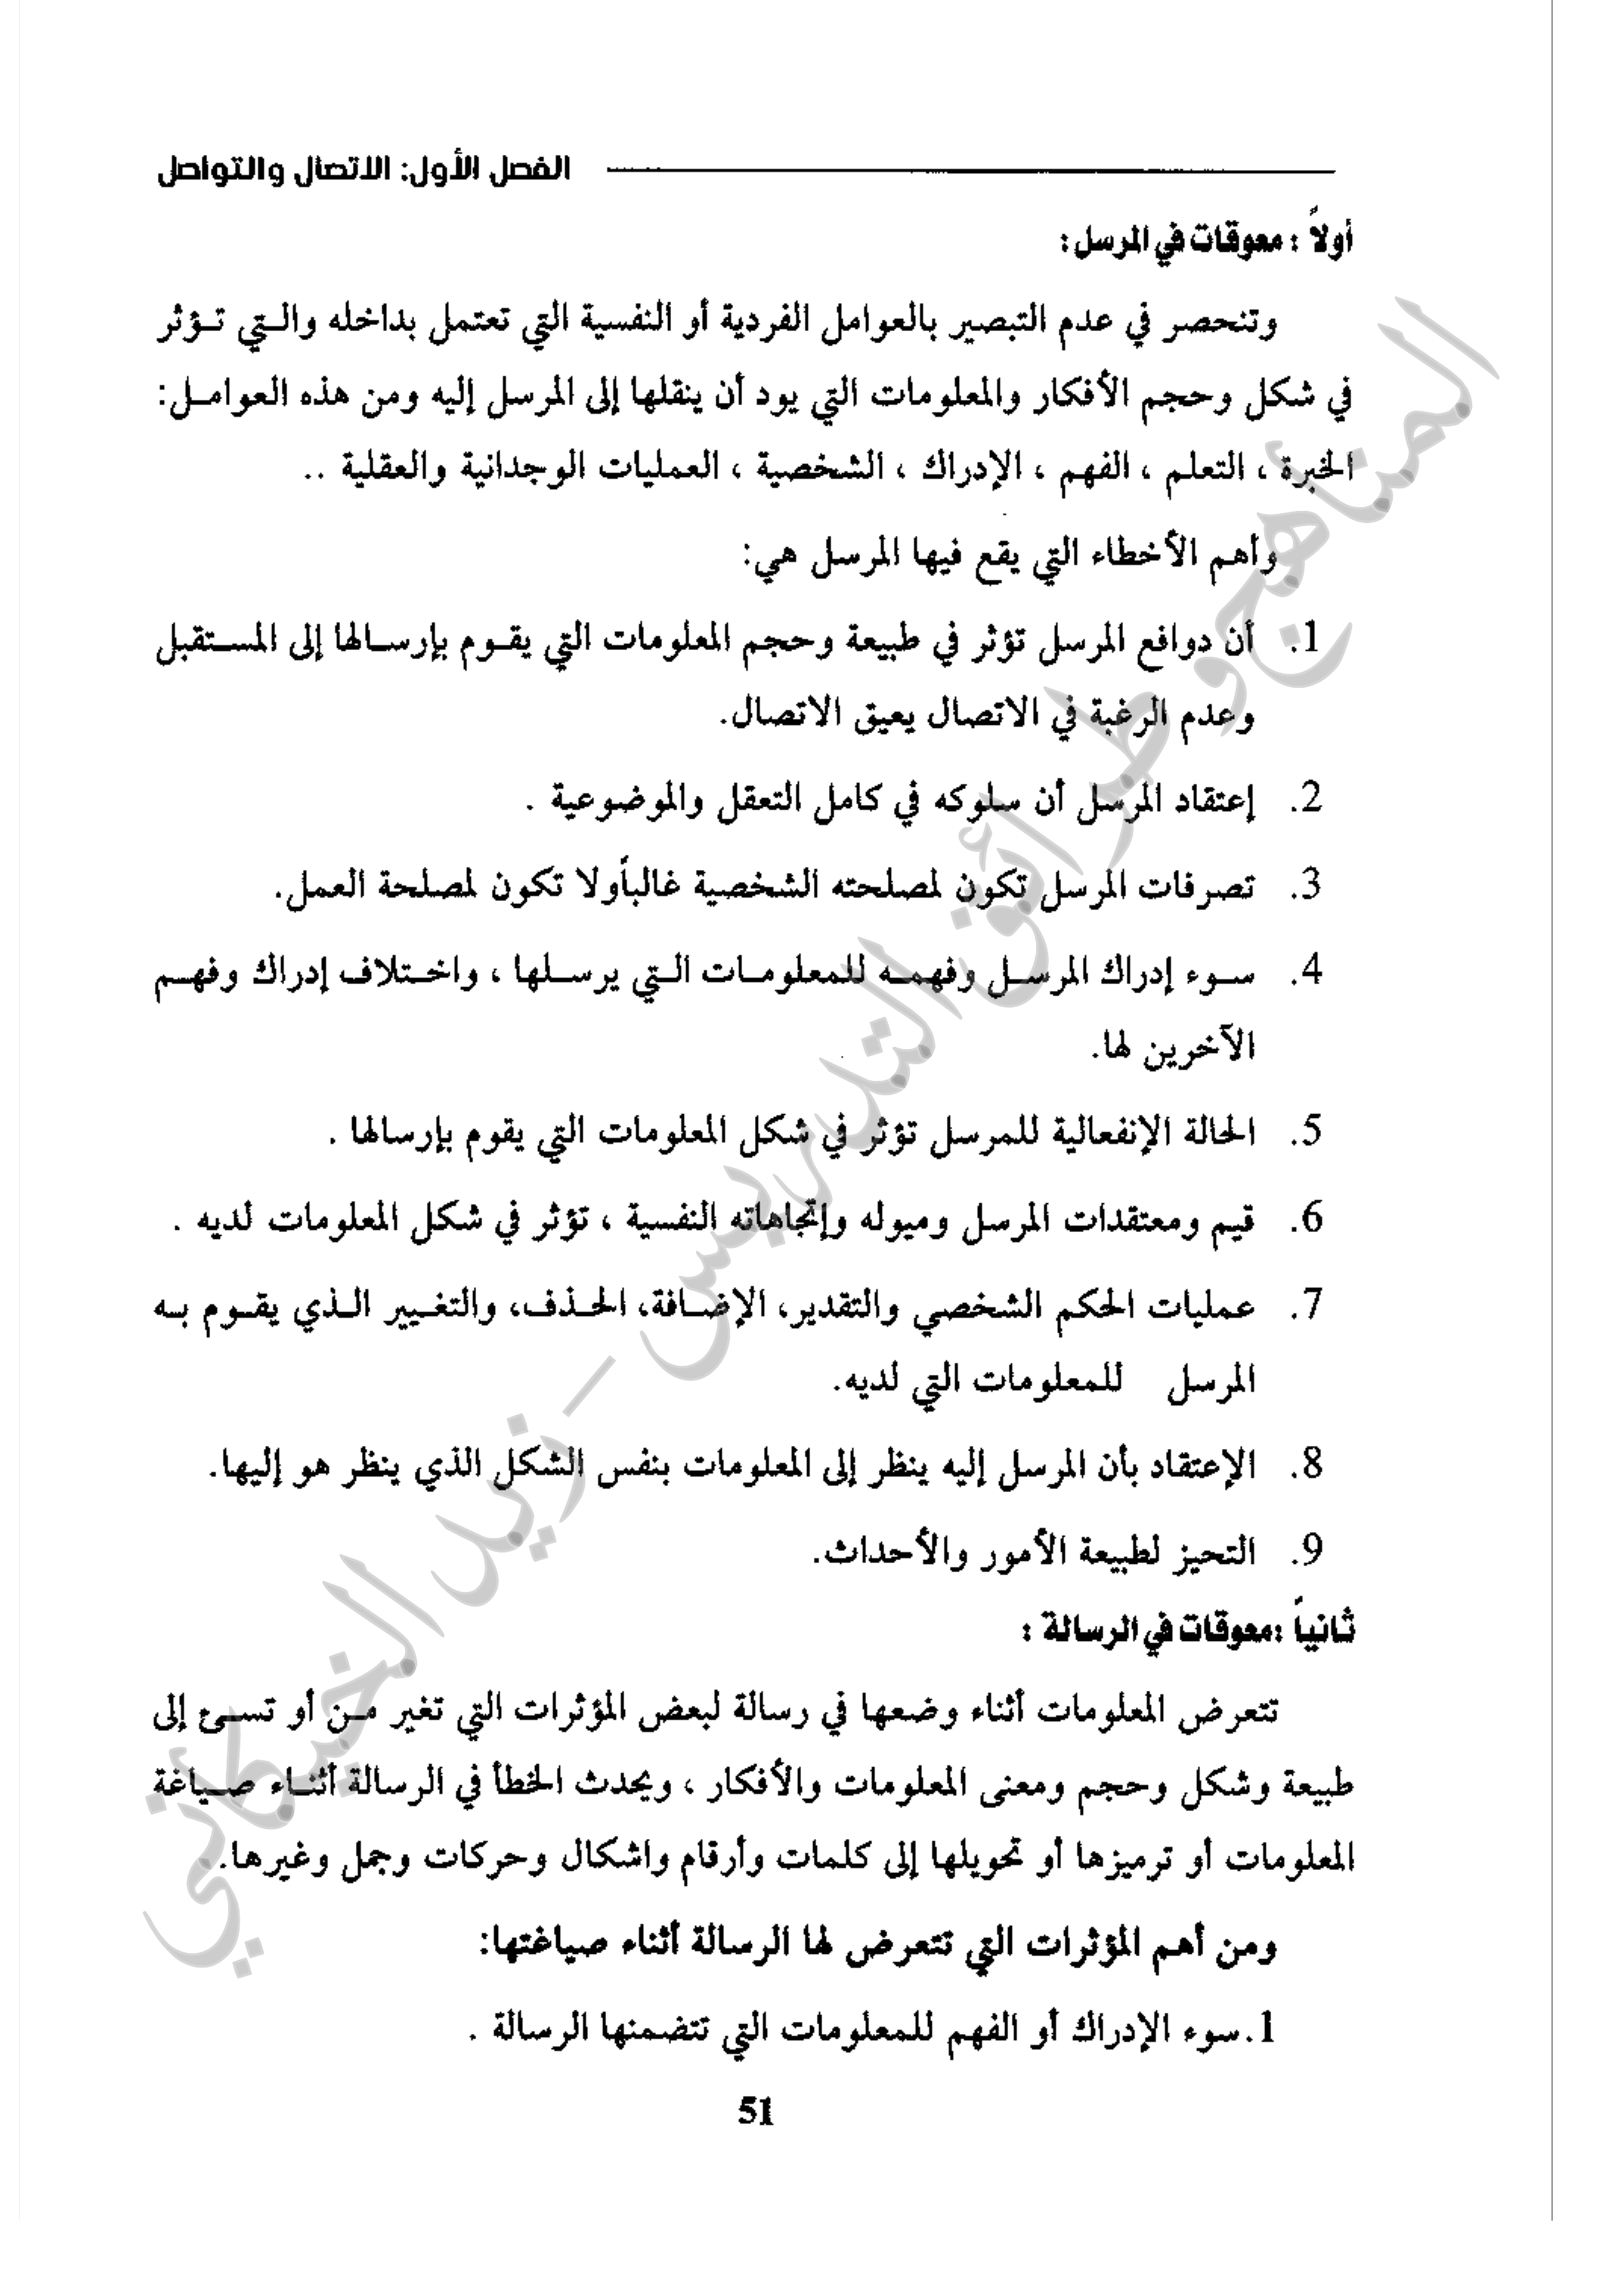 الفصل الأول: الاتصال والتواصل
أولاً : معوقات في المرسل:
وتنحصر في عدم التبصير بالعوامل الفردية أو النفسية التي تعتمل بداخله والتي تؤثر
في شكل وحجم الأفكار والمعلومات التي يود أن ينقلها إلى المرسل إليه ومن هذه العوامل:
الخبرة ، التعلم ، الفهم ، الإدراك ، الشخصية ، العمليات الوجدانية والعقلية ..
وأهم الأخطاء التي يقع فيها المرسل هي:
1. أن دوافع المرسل تؤثر في طبيعة وحجم المعلومات التي يقوم بإرسالها إلى المستقبل
وعدم الرغبة في الاتصال يعيق الاتصال.
2. إعتقاد المرسل أن سلوكه في كامل التعقل والموضوعية .
3. تصرفات المرسل تكون لمصلحته الشخصية غالباًولا تكون لمصلحة العمل.
4. سوء إدراك المرسل وفهمه للمعلومات التي يرسلها ، واختلاف إدراك وفهم
الآخرين لها.
5. الحالة الإنفعالية للمرسل تؤثر في شكل المعلومات التي يقوم بإرسالها .
6. قيم ومعتقدات المرسل وميوله وإتجاهاته النفسية ، تؤثر في شكل المعلومات لديه .
7. عمليات الحكم الشخصي والتقدير، الإضافة، الحذف، والتغيير الذي يقوم به
المرسل للمعلومات التي لديه.
8. الإعتقاد بأن المرسل إليه ينظر إلى المعلومات بنفس الشكل الذي ينظر هو إليها.
9. التحيز لطبيعة الأمور والأحداث.
ثانياً :معوقات في الرسالة :
تتعرض المعلومات أثناء وضعها في رسالة لبعض المؤثرات التي تغير من أو تسئ إلى
طبيعة وشكل وحجم ومعنى المعلومات والأفكار ، ويحدث الخطأ في الرسالة أثناء صياغة
المعلومات أو ترميزها أو تحويلها إلى كلمات وأرقام واشكال وحركات وجمل وغيرها.
ومن أهم المؤثرات التي تتعرض لها الرسالة أثناء صياغتها:
1.سوء الإدراك أو الفهم للمعلومات التي تتضمنها الرسالة .
51
المناهج وطرائق التدريس - زيد الخيكاني